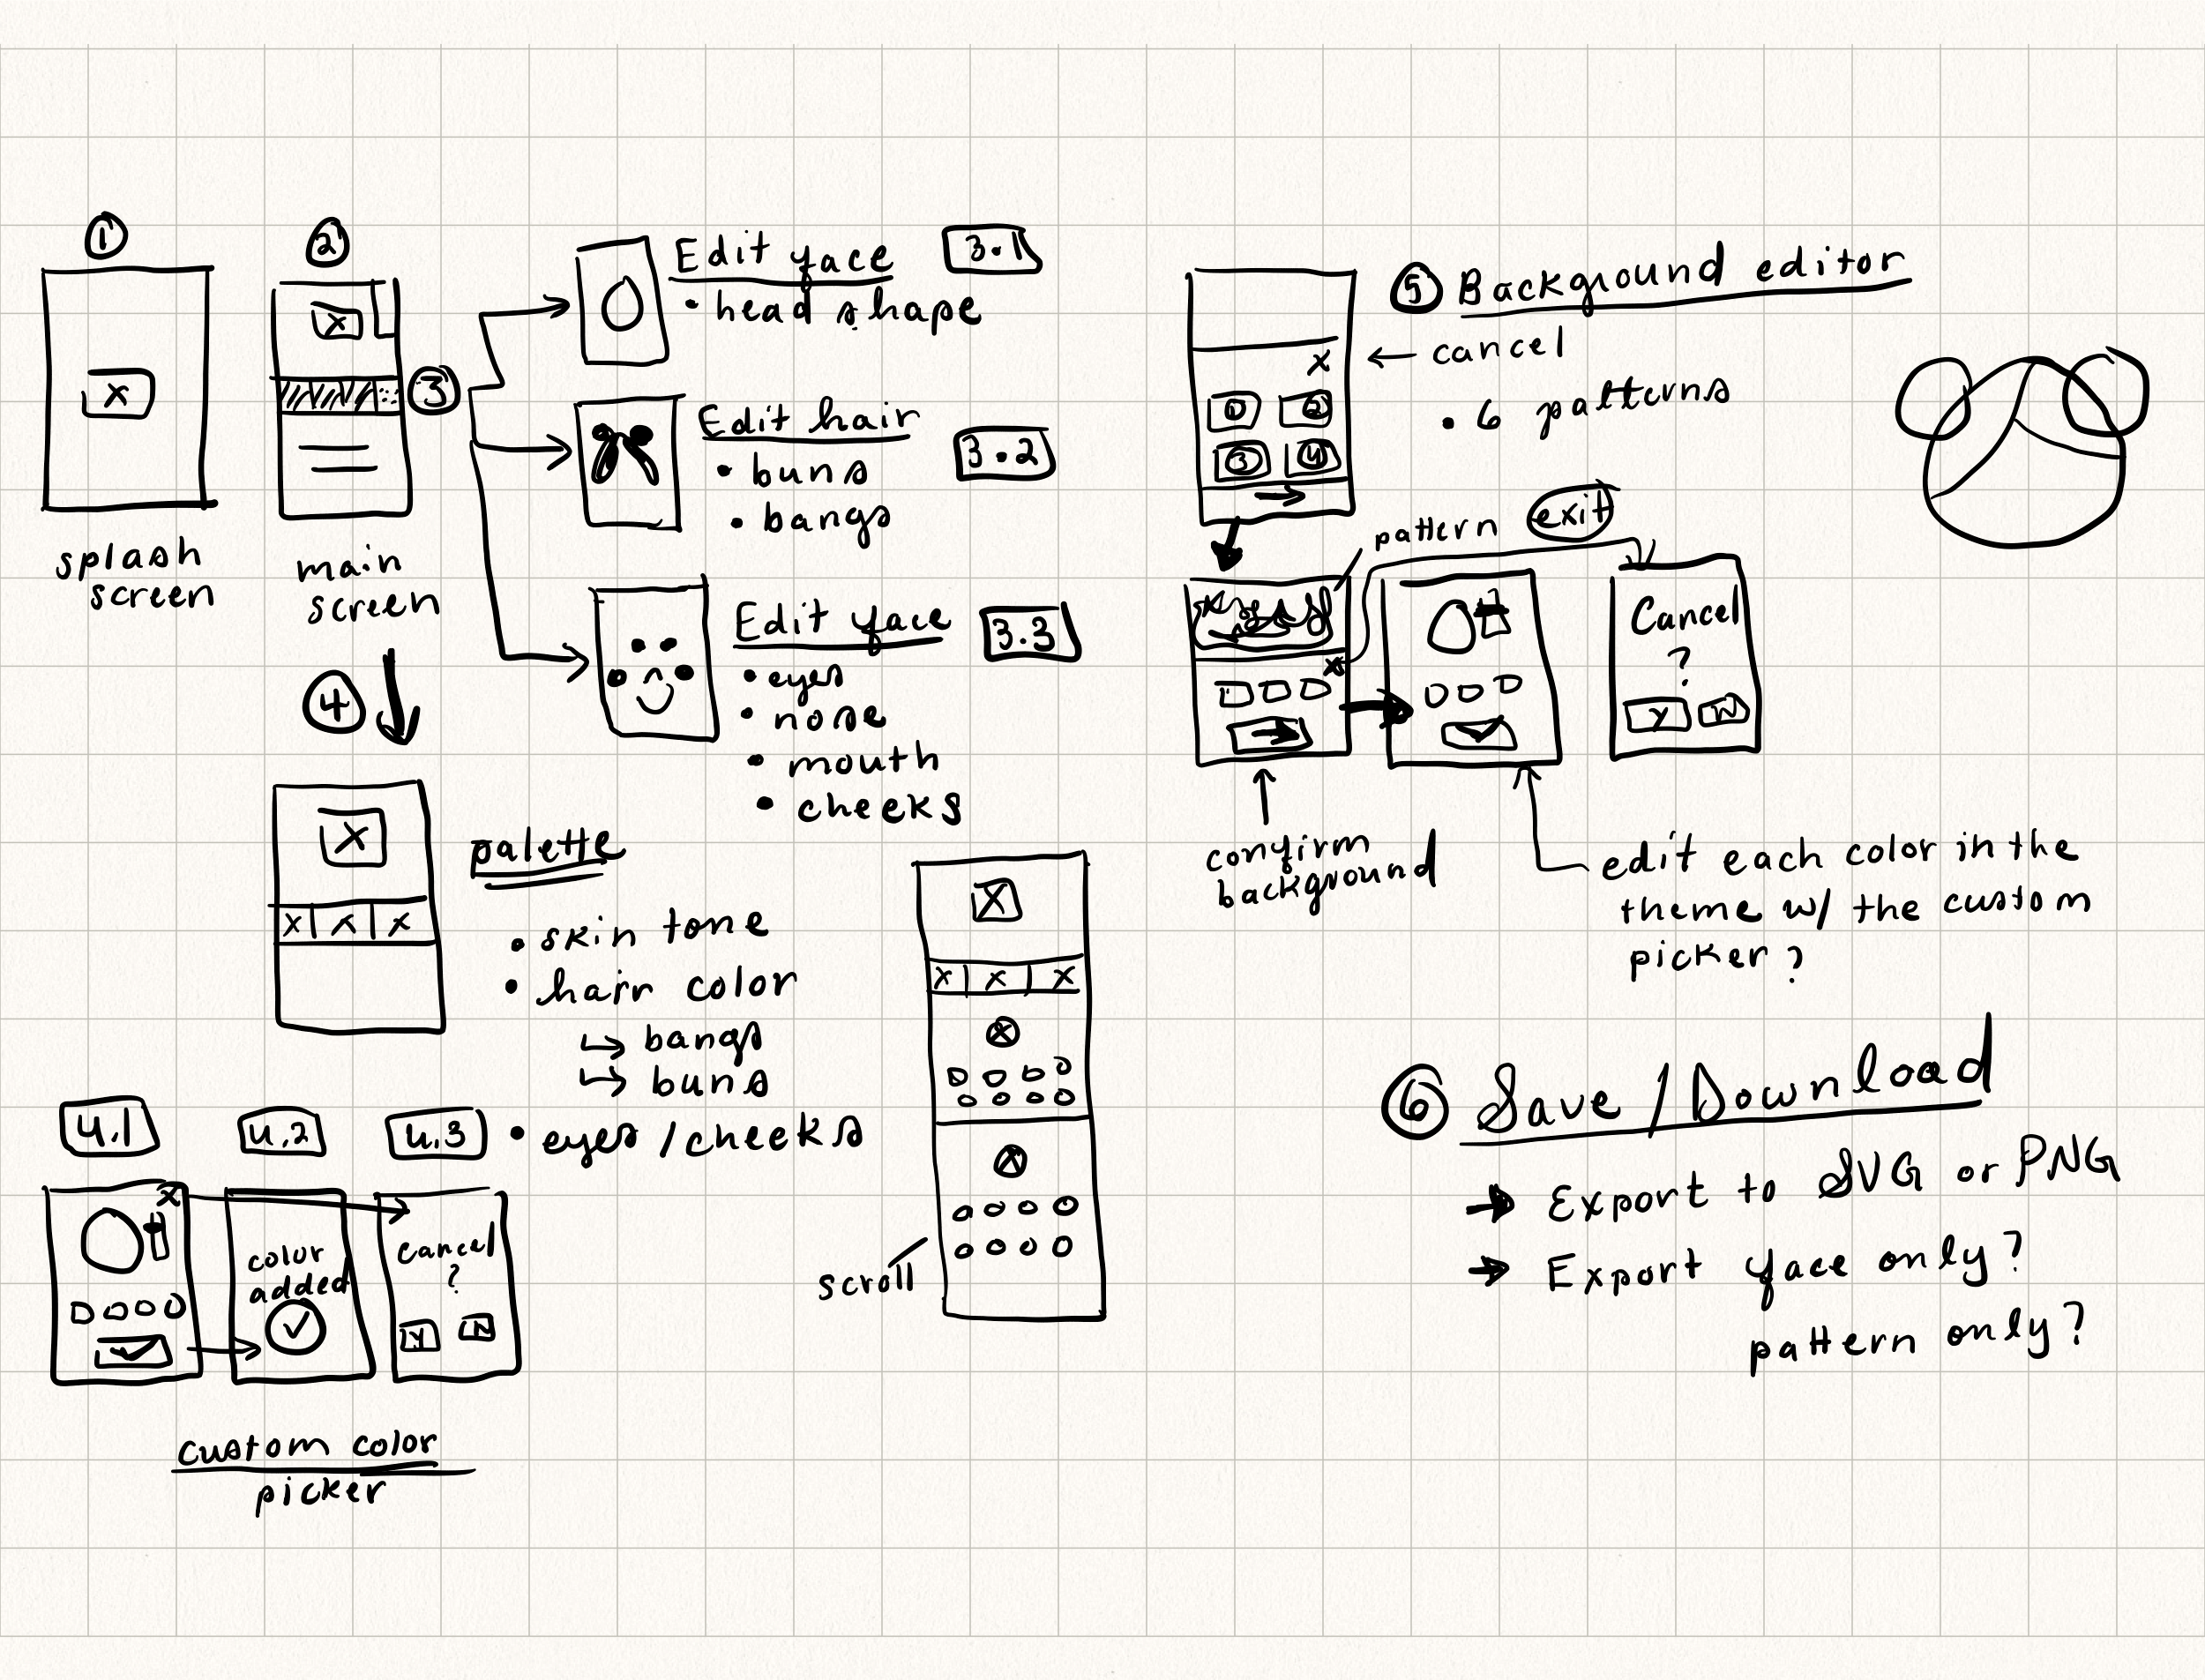 1
splash
screen
2
main
screen
3
Edit face
3.1
• head shape
Edit hair
3.2
• buns
• bangs
Edit face
3.3
• eyes
• nose
• mouth
• cheeks
4
x
x
x
x
x
x
palette
• skin tone
• hair color
↳ bangs
↳ buns
• eyes / cheeks
4.1
4.2
4.3
x
color
added
✓
✓
cancel
?
Y
N
custom color
picker
x
x
x
x
x
x
scroll
5 Background editor
x
← cancel
1
2
3
4
→
• 6 patterns
pattern
exit
x
→
✓
Cancel
?
Y
N
confirm
background
edit each color in the
theme w/ the custom
picker?
6 Save / Download
→ Export to SVG or PNG
→ Export face only?
pattern only?